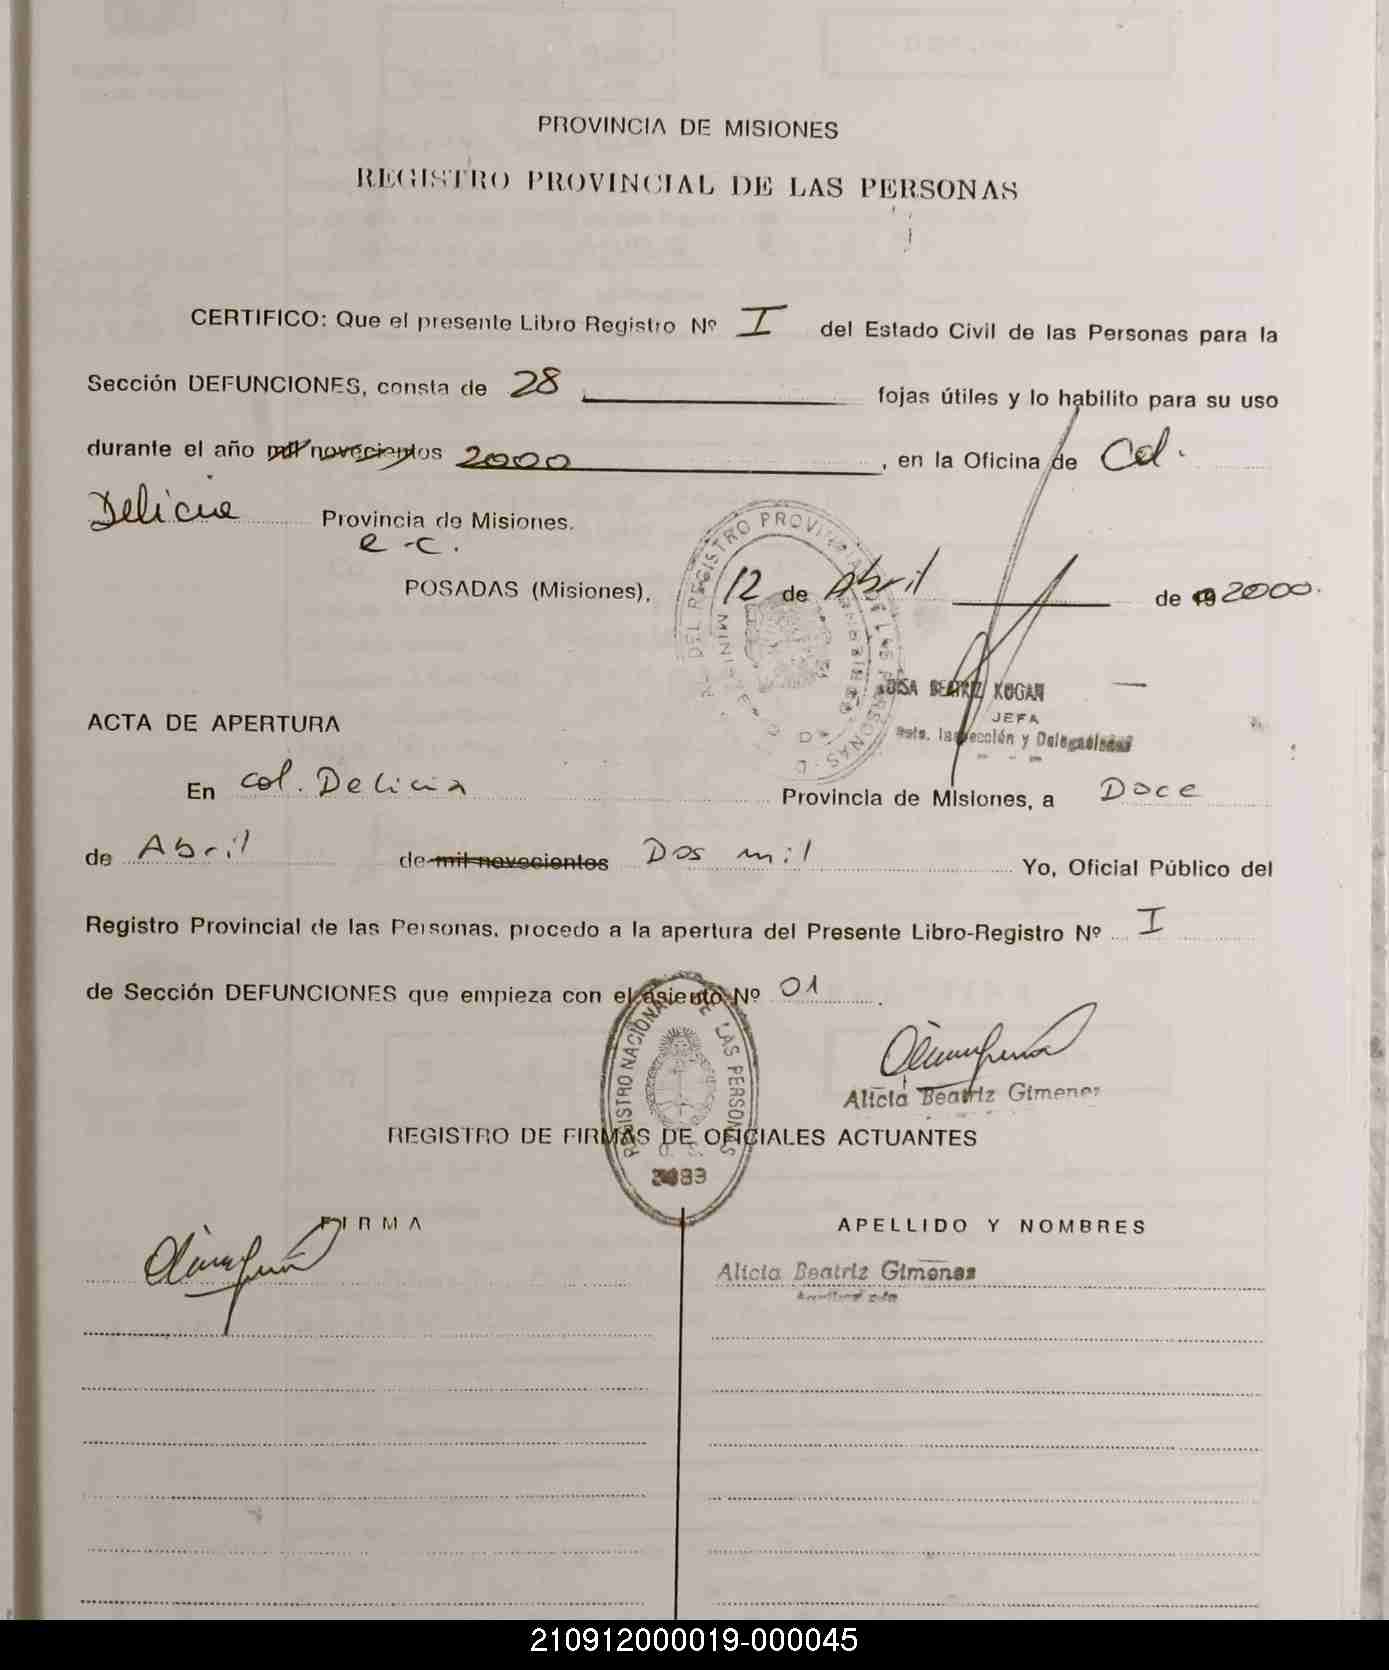 PROVINCIA DE MISIONES
REGISTRO PROVINCIAL DE LAS PERSONAS
CERTIFICO: Que el presente Libro Registro Nº I del Estado Civil de las Personas para la
Sección DEFUNCIONES, consta de 28 fojas útiles y lo habilito para su uso
durante el año mil novecientos 2000, en la Oficina de Col.
Delicia Provincia de Misiones.
e.c.
POSADAS (Misiones), 12 de Abril de 19 2000.
BEATRIZ KOGAN
JEFA
Dpto. Inspección y Delegaciones
REGISTRO PROVINCIAL DE LAS PERSONAS
ACTA DE APERTURA
En Col. Delicia Provincia de Misiones, a Doce
de Abril de mil novecientos Dos mil Yo, Oficial Público del
Registro Provincial de las Personas, procedo a la apertura del Presente Libro-Registro Nº I
de Sección DEFUNCIONES que empieza con el asiento Nº 01.
Alicia Beatriz Gimenez
REGISTRO NACIONAL DE LAS PERSONAS
REGISTRO DE FIRMAS DE OFICIALES ACTUANTES
FIRMA APELLIDO Y NOMBRES
Alicia Beatriz Gimenez
210912000019-000045